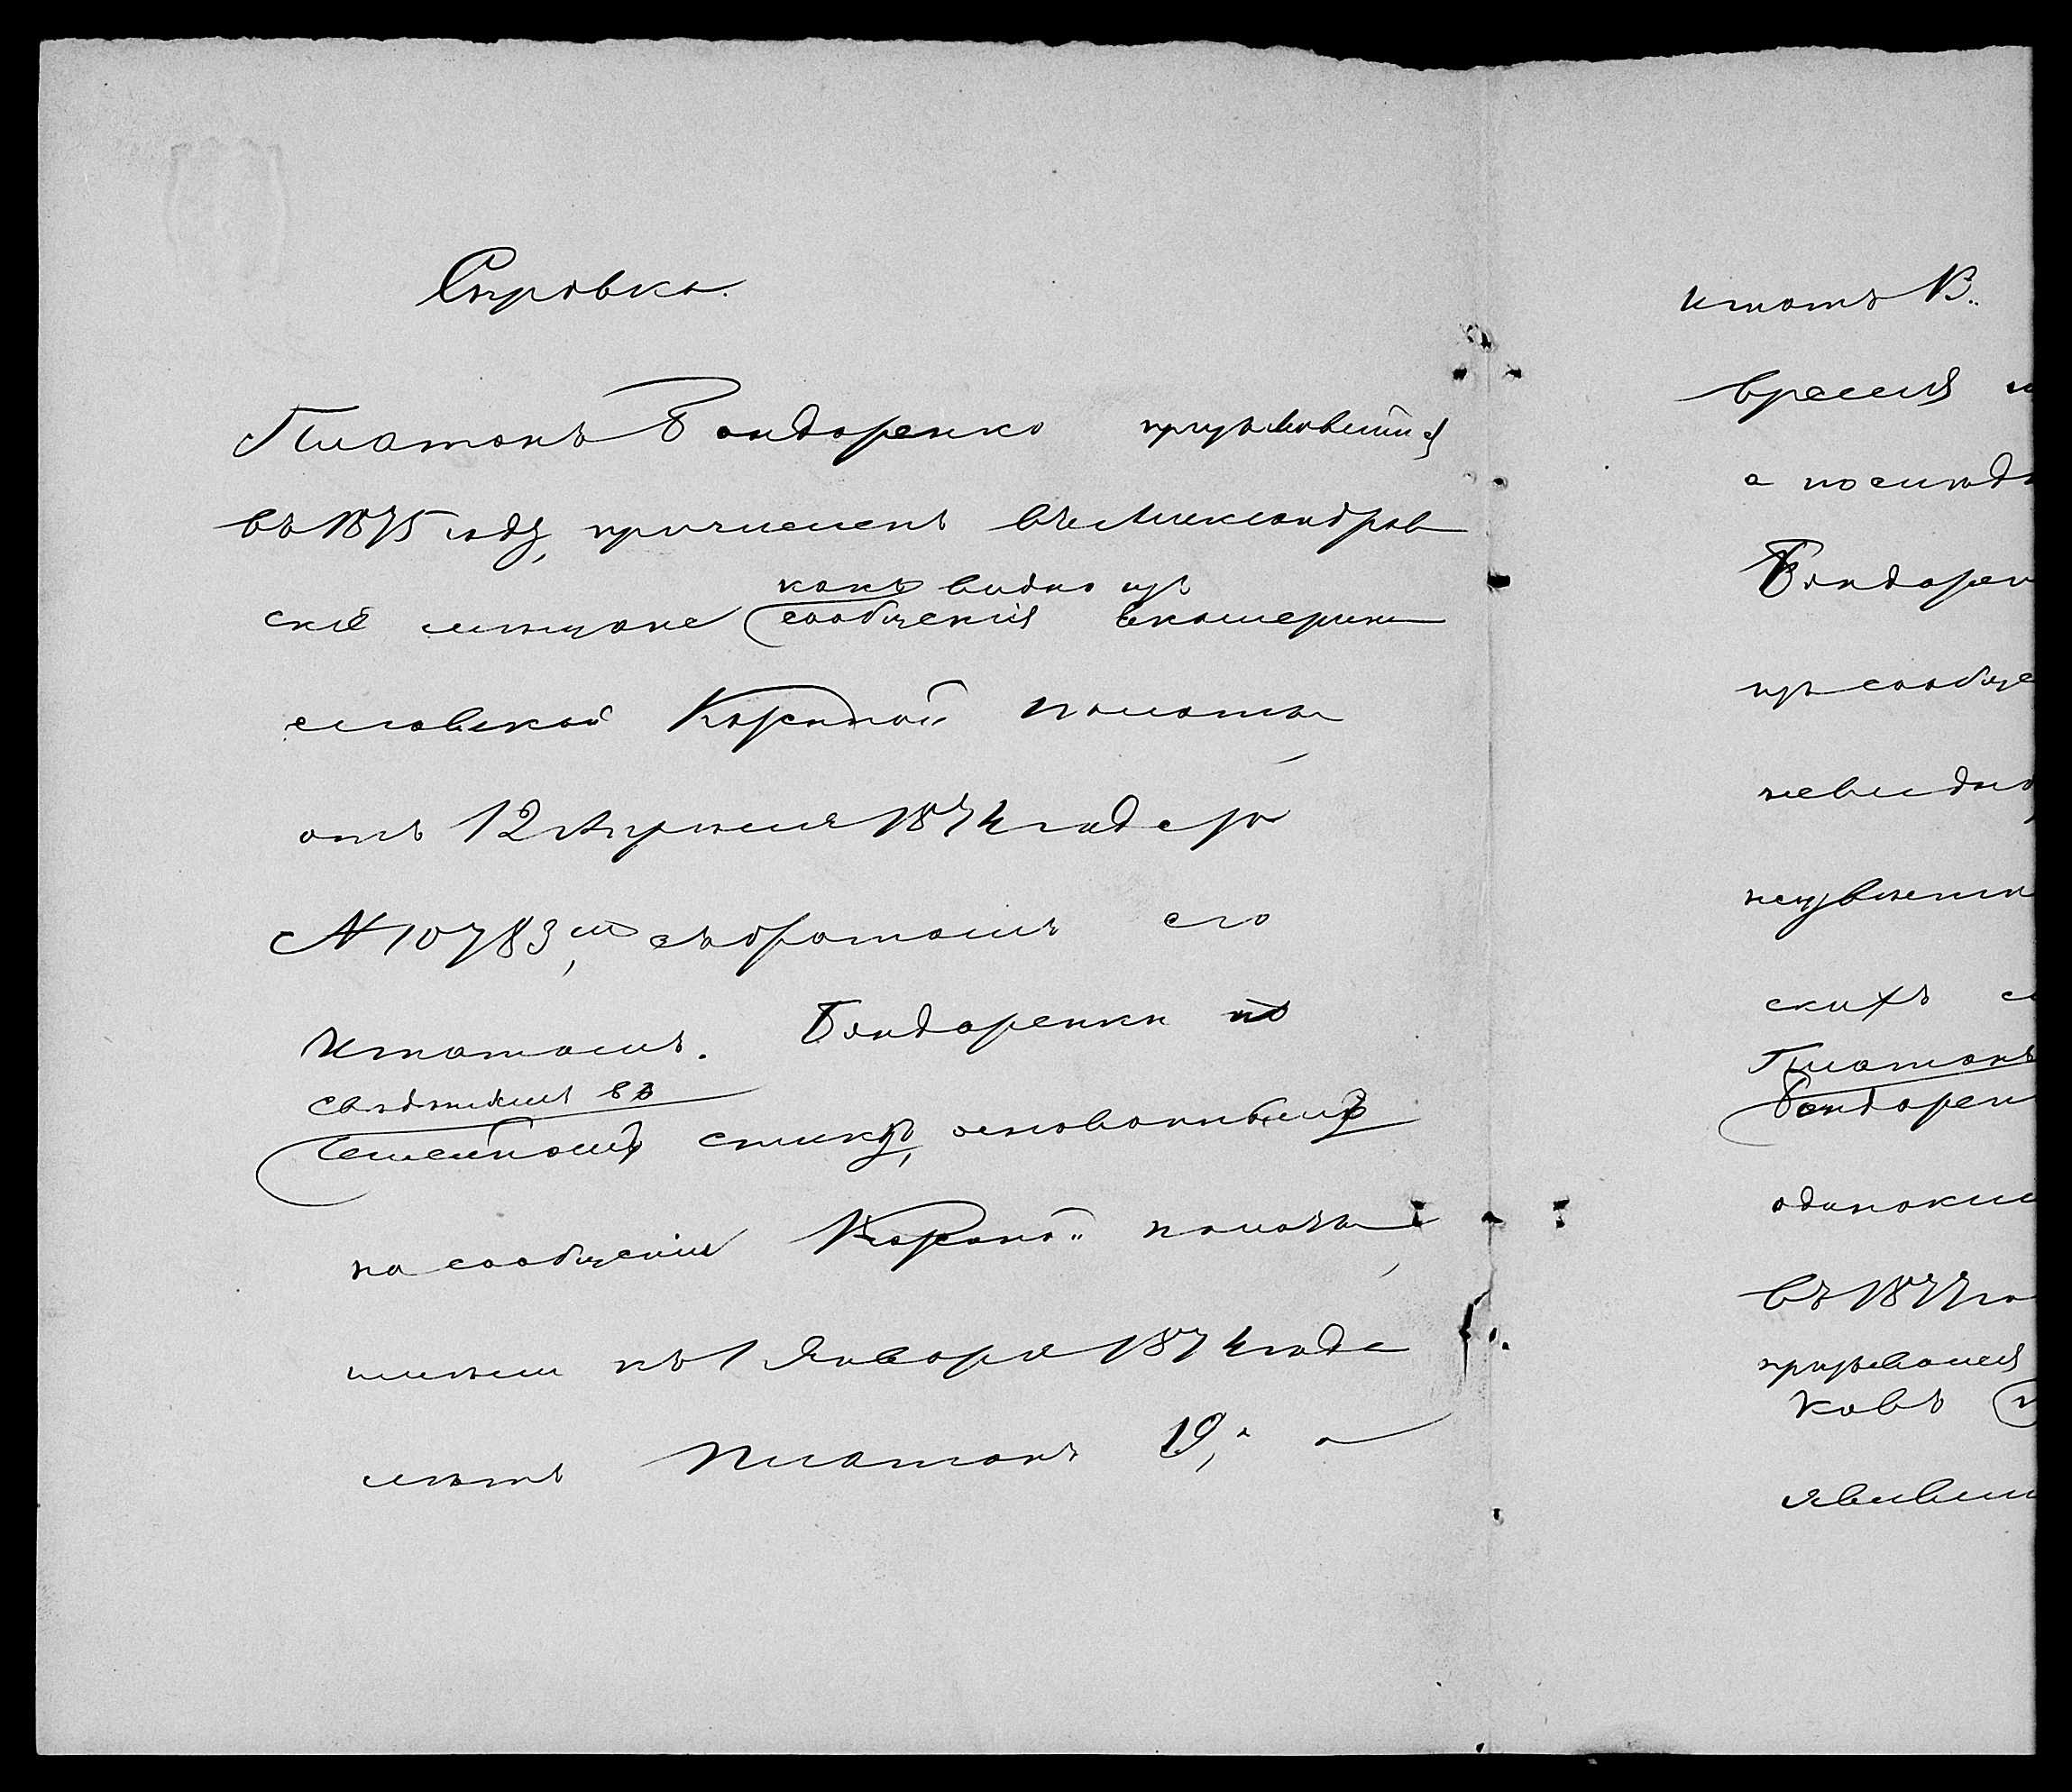 Справка.
Платонъ Бондаренко призывавшійся
въ 1875 году, причисленъ въ Александров
скіе мещане какъ видно изъ
сообщенія Екатерино
славской Казенной палаты
отъ 12 Апреля 1874 года за
№ 10783, съ братомъ его
Игнатомъ. Бондаренки по
сведеніямъ въ
семейномъ списку, основаннымъ
на сообщеніи Казеной палаты,
имели къ 1 Января 1874 года
летъ Платонъ 19, а
Игнатъ В..
время
а последн
Бондарен
изъ сообще
невидно,
неизвестн
скихъ
Платонъ
Бондарен
одиноким
въ 1877 го
призывался
ковъ
явивши